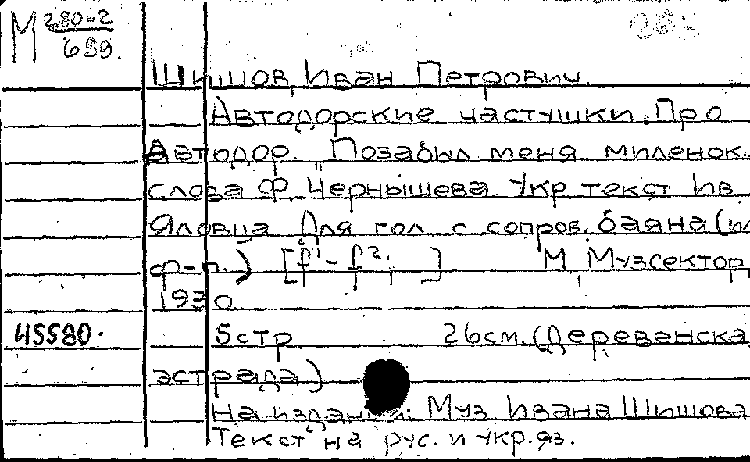 М 280-2
699.
Шишов, Иван Петрович
Автодорские частушки. Про
Автодор. Позабыл меня миленок.
слова Ф. Чернышева. Укр. текст Ив.
Яловца. Для гол. с сопров. баяна (ил
ф-п.) [f¹-f²] М., Музсектор,
1930
45580.
5 стр 26 см. (Дереванска
эстрада)
На издании: Муз. Ивана Шишова
Текст на рус. и укр. яз.